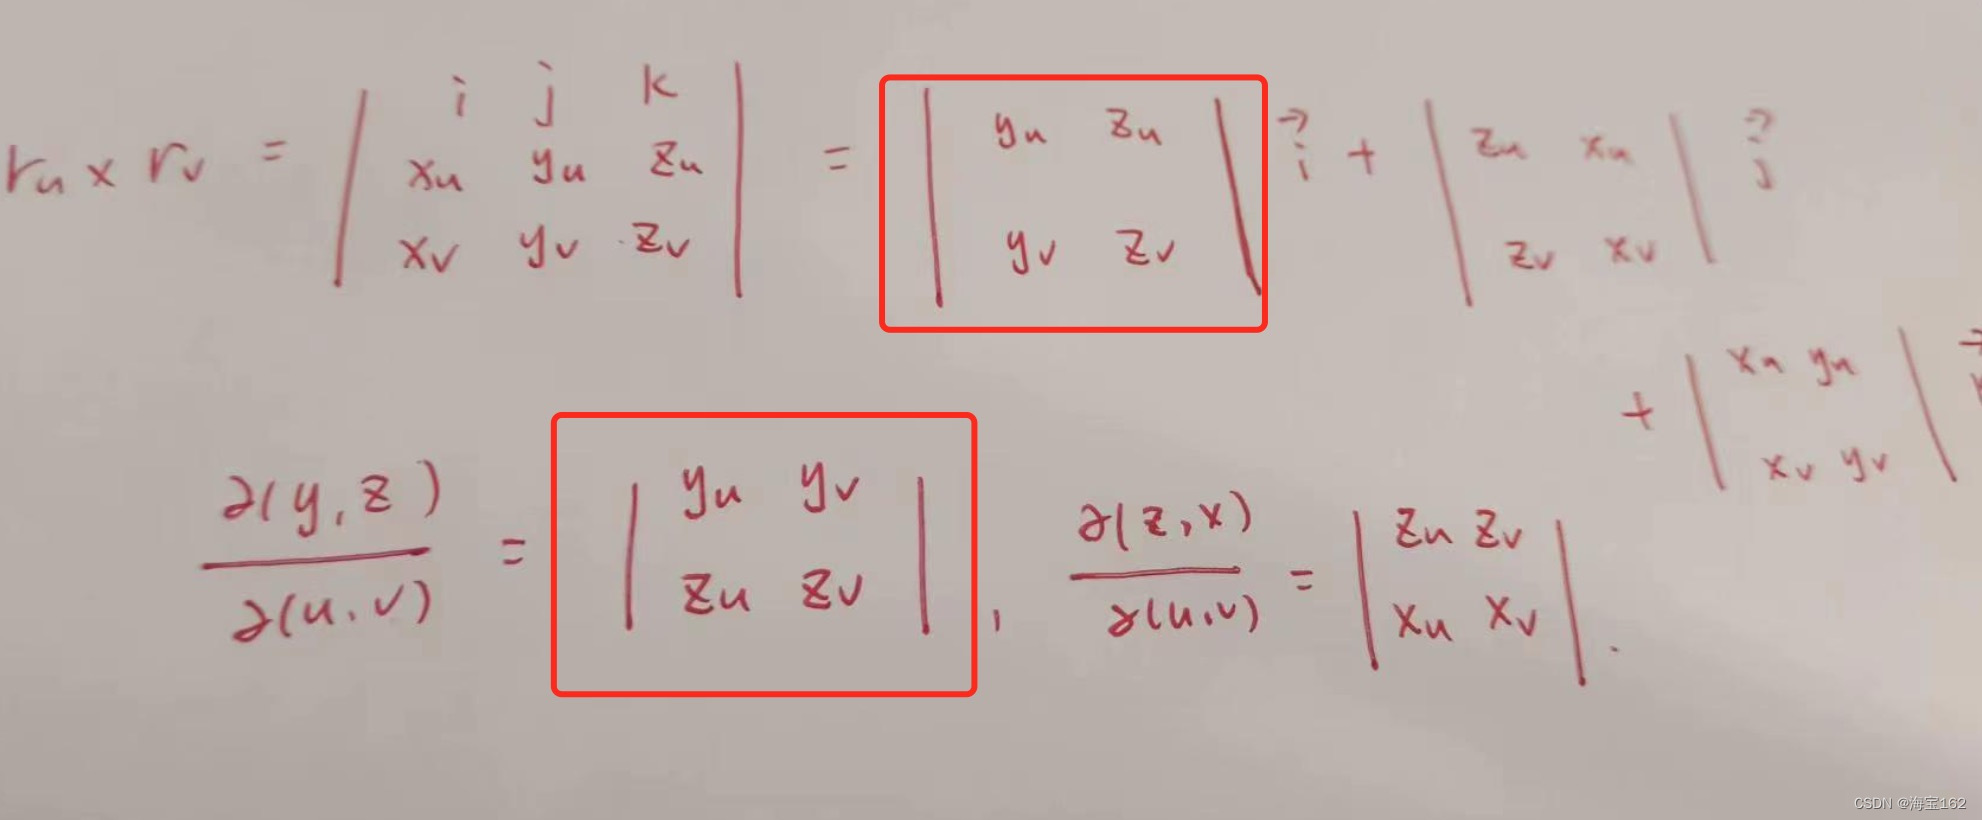 r_u × r_v = | i j k ; x_u y_u z_u ; x_v y_v z_v | = | y_u z_u ; y_v z_v | i⃗ + | z_u x_u ; z_v x_v | j⃗
+ | x_u y_u ; x_v y_v |
∂(y,z)/∂(u,v) = | y_u y_v ; z_u z_v | , ∂(z,x)/∂(u,v) = | z_u z_v ; x_u x_v | .
CSDN @海宝162